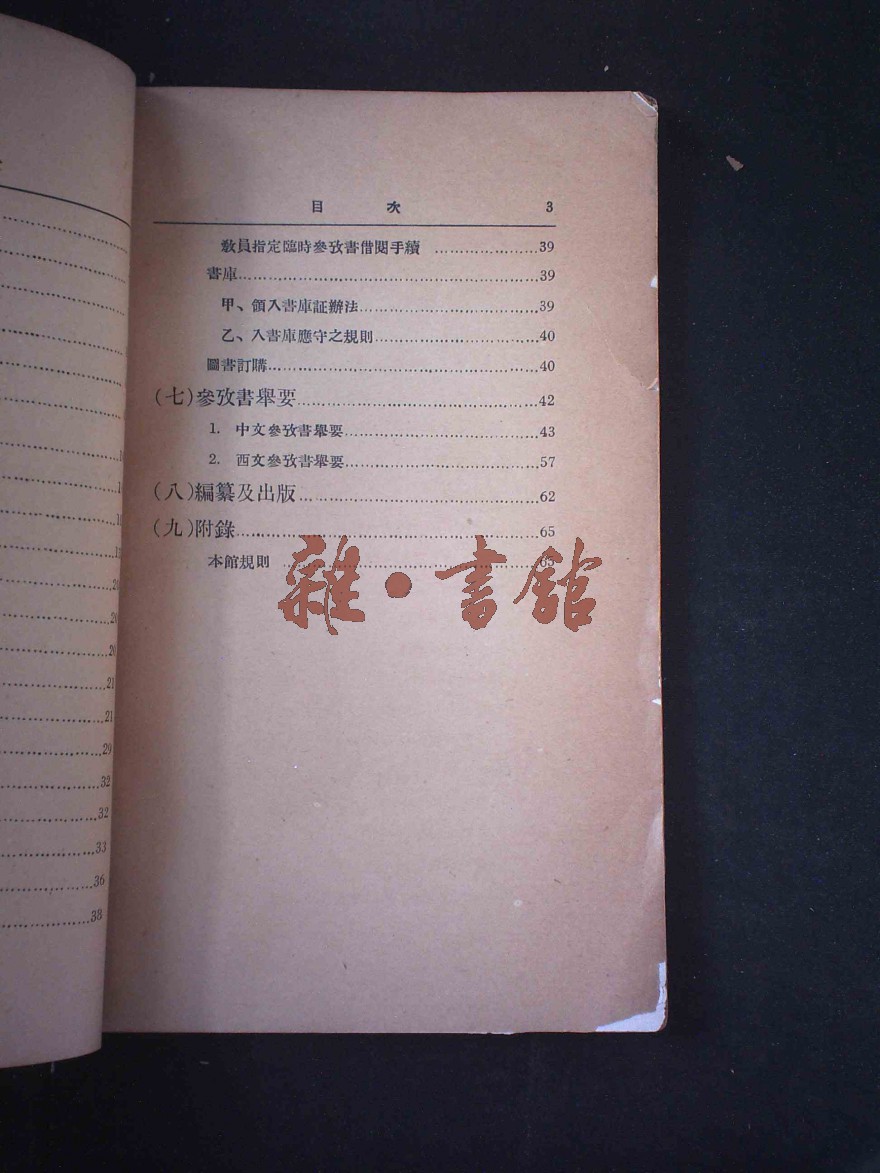 目 次 3
教員指定臨時參攷書借閱手續 ........................39
書庫........................39
甲、領入書庫証辦法........................39
乙、入書庫應守之規則........................40
圖書訂購........................40
(七)參攷書舉要........................42
1. 中文參攷書舉要........................43
2. 西文參攷書舉要........................57
(八)編纂及出版........................62
(九)附錄........................65
本館規則 ........................65
雜·書館
20
21
21
29
32
32
33
36
38